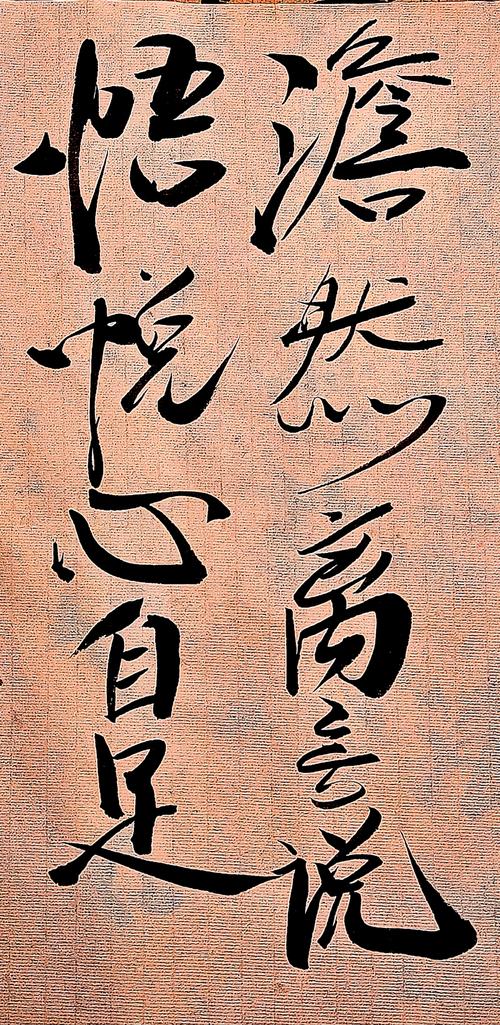 澹然离言说
悟悦心自足